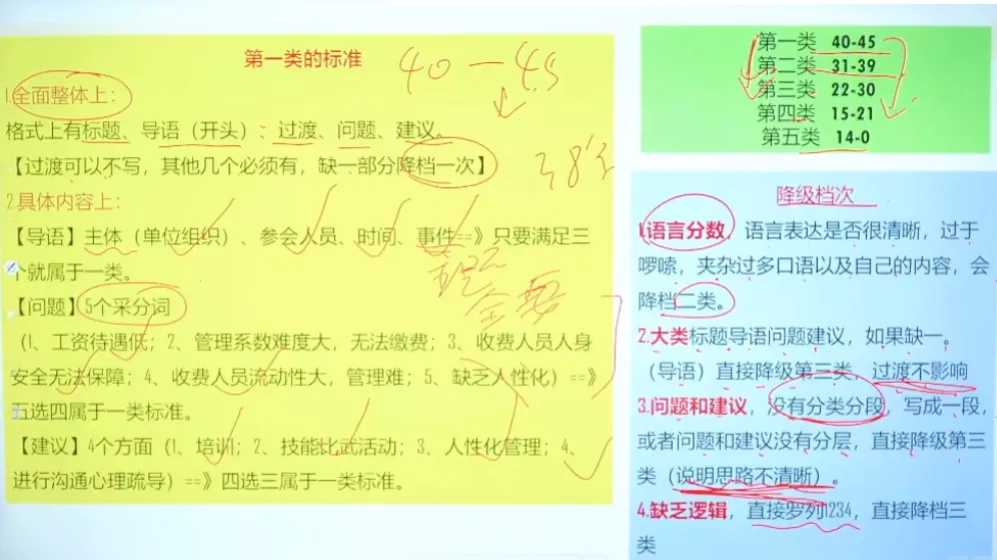 第一类的标准
40-45
1.全面整体上：
格式上有标题、导语（开头）、过渡、问题、建议。
【过渡可以不写，其他几个必须有，缺一部分降档一次】
2.具体内容上：
【导语】主体（单位组织）、参会人员、时间、事件==》只要满足三
个就属于一类。
【问题】5个采分词
（1、工资待遇低；2、管理系数难度大，无法缴费；3、收费人员人身
安全无法保障；4、收费人员流动性大，管理难；5、缺乏人性化）==》
五选四属于一类标准。
【建议】4个方面（1、培训；2、技能比武活动；3、人性化管理；4、
进行沟通心理疏导）==》四选三属于一类标准。
第一类 40-45
第二类 31-39
第三类 22-30
第四类 15-21
第五类 14-0
降级档次
1.语言分数，语言表达是否很清晰，过于
啰嗦，夹杂过多口语以及自己的内容，会
降档二类。
2.大类标题导语问题建议，如果缺一。
（导语）直接降级第三类，过渡不影响
3.问题和建议，没有分类分段，写成一段，
或者问题和建议没有分层，直接降级第三
类（说明思路不清晰）。
4.缺乏逻辑，直接罗列1234，直接降档三
类